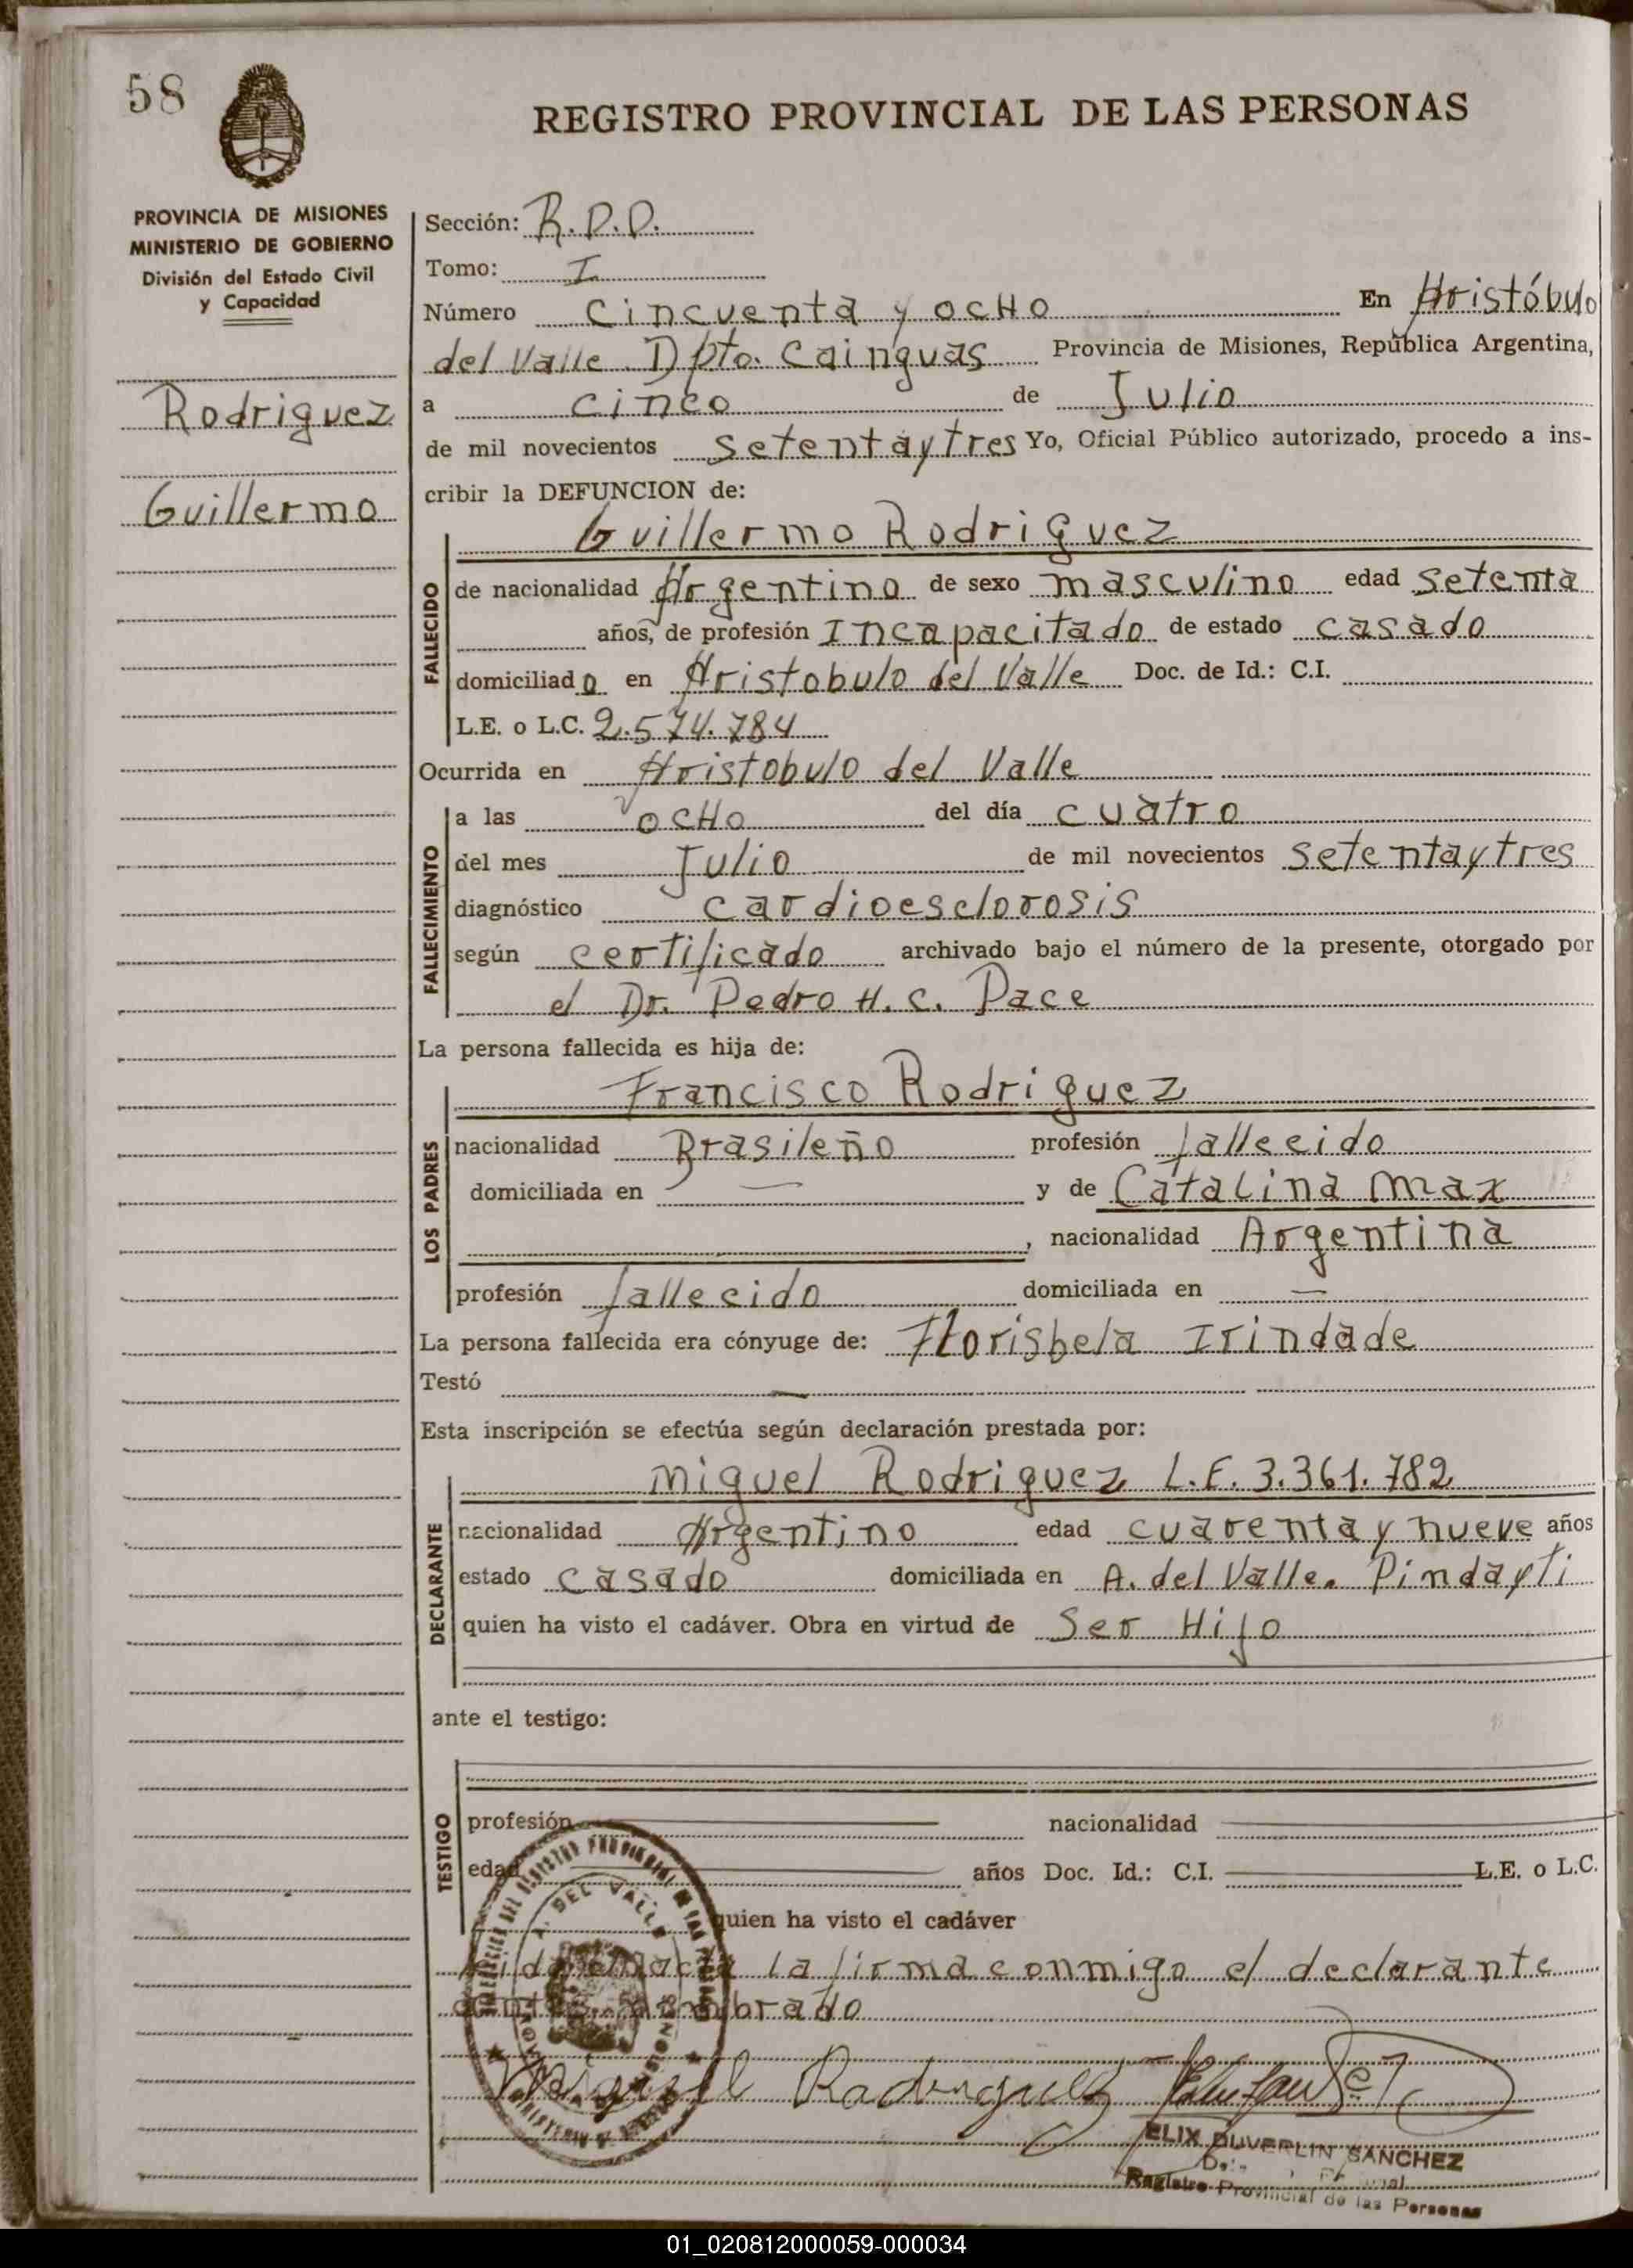 58
REGISTRO PROVINCIAL DE LAS PERSONAS
PROVINCIA DE MISIONES
MINISTERIO DE GOBIERNO
División del Estado Civil
y Capacidad
Rodriguez
Guillermo
Sección: R.D.D.
Tomo: I
Número cincuenta y ocHo En Aristóbulo
del Valle. Dpto. Cainguas Provincia de Misiones, República Argentina,
a cinco de Julio
de mil novecientos setentaytres Yo, Oficial Público autorizado, procedo a ins-
cribir la DEFUNCION de:
Guillermo Rodriguez
FALLECIDO
de nacionalidad Argentino de sexo masculino edad setenta
años, de profesión Incapacitado de estado casado
domiciliado en Aristobulo del Valle Doc. de Id.: C.I.
L.E. o L.C. 2.574.784
Ocurrida en Aristobulo del Valle
FALLECIMIENTO
a las ocHo del día cuatro
del mes Julio de mil novecientos setentaytres
diagnóstico cardioesclorosis
según certificado archivado bajo el número de la presente, otorgado por
el Dr. Pedro H. C. Pace
La persona fallecida es hija de:
Francisco Rodriguez
LOS PADRES
nacionalidad Brasileño profesión fallecido
domiciliada en — y de Catalina Max
, nacionalidad Argentina
profesión fallecido domiciliada en —
La persona fallecida era cónyuge de: Florisbela Trindade
Testó —
Esta inscripción se efectúa según declaración prestada por:
Miguel Rodriguez L.E. 3.361.782
DECLARANTE
nacionalidad Argentino edad cuarenta y nueve años
estado casado domiciliada en A. del Valle. Pindayti
quien ha visto el cadáver. Obra en virtud de Ser Hijo
ante el testigo:
TESTIGO
profesión nacionalidad
edad años Doc. Id.: C.I. L.E. o L.C.
quien ha visto el cadáver
la firma conmigo el declarante
Miguel Rodriguez
ELIX DUVERLIN SANCHEZ
Registro Provincial de las Personas
01_020812000059-000034